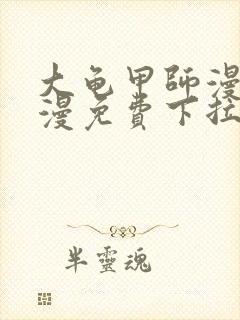 大龟甲師漫
漫免費下拉
半靈魂